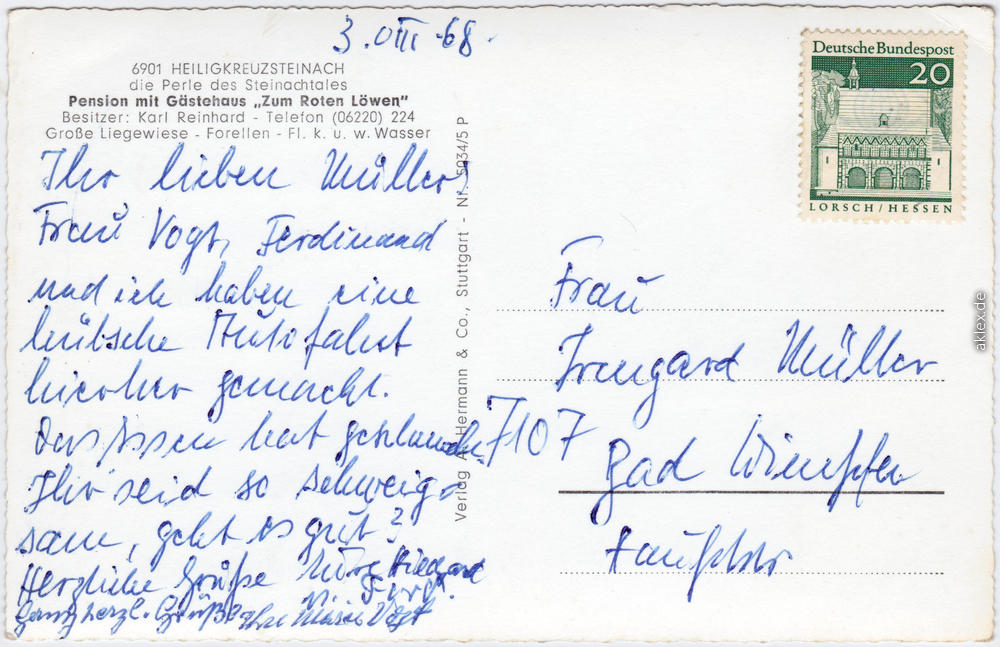 3. VIII. 68.
6901 HEILIGKREUZSTEINACH
die Perle des Steinachtales
Pension mit Gästehaus „Zum Roten Löwen"
Besitzer: Karl Reinhard - Telefon (06220) 224
Große Liegewiese - Forellen - Fl. k. u. w. Wasser
Ihr lieben Müller!
Frau Vogt, Ferdinand
und ich haben eine
hübsche Autofahrt
hierher gemacht.
Das Essen hat geschmeckt.
Ihr seid so schweig-
sam, geht es gut?
Herzliche Grüße Hildegard
u. Ferd.
Ganz herzl. Grüße Ihre Maria Vogt
Verlag A. Hermann & Co., Stuttgart - Nr. 5034/5 P
Deutsche Bundespost
20
LORSCH/HESSEN
Frau
Irmgard Müller
7107
Bad Wimpfen
aklex.de